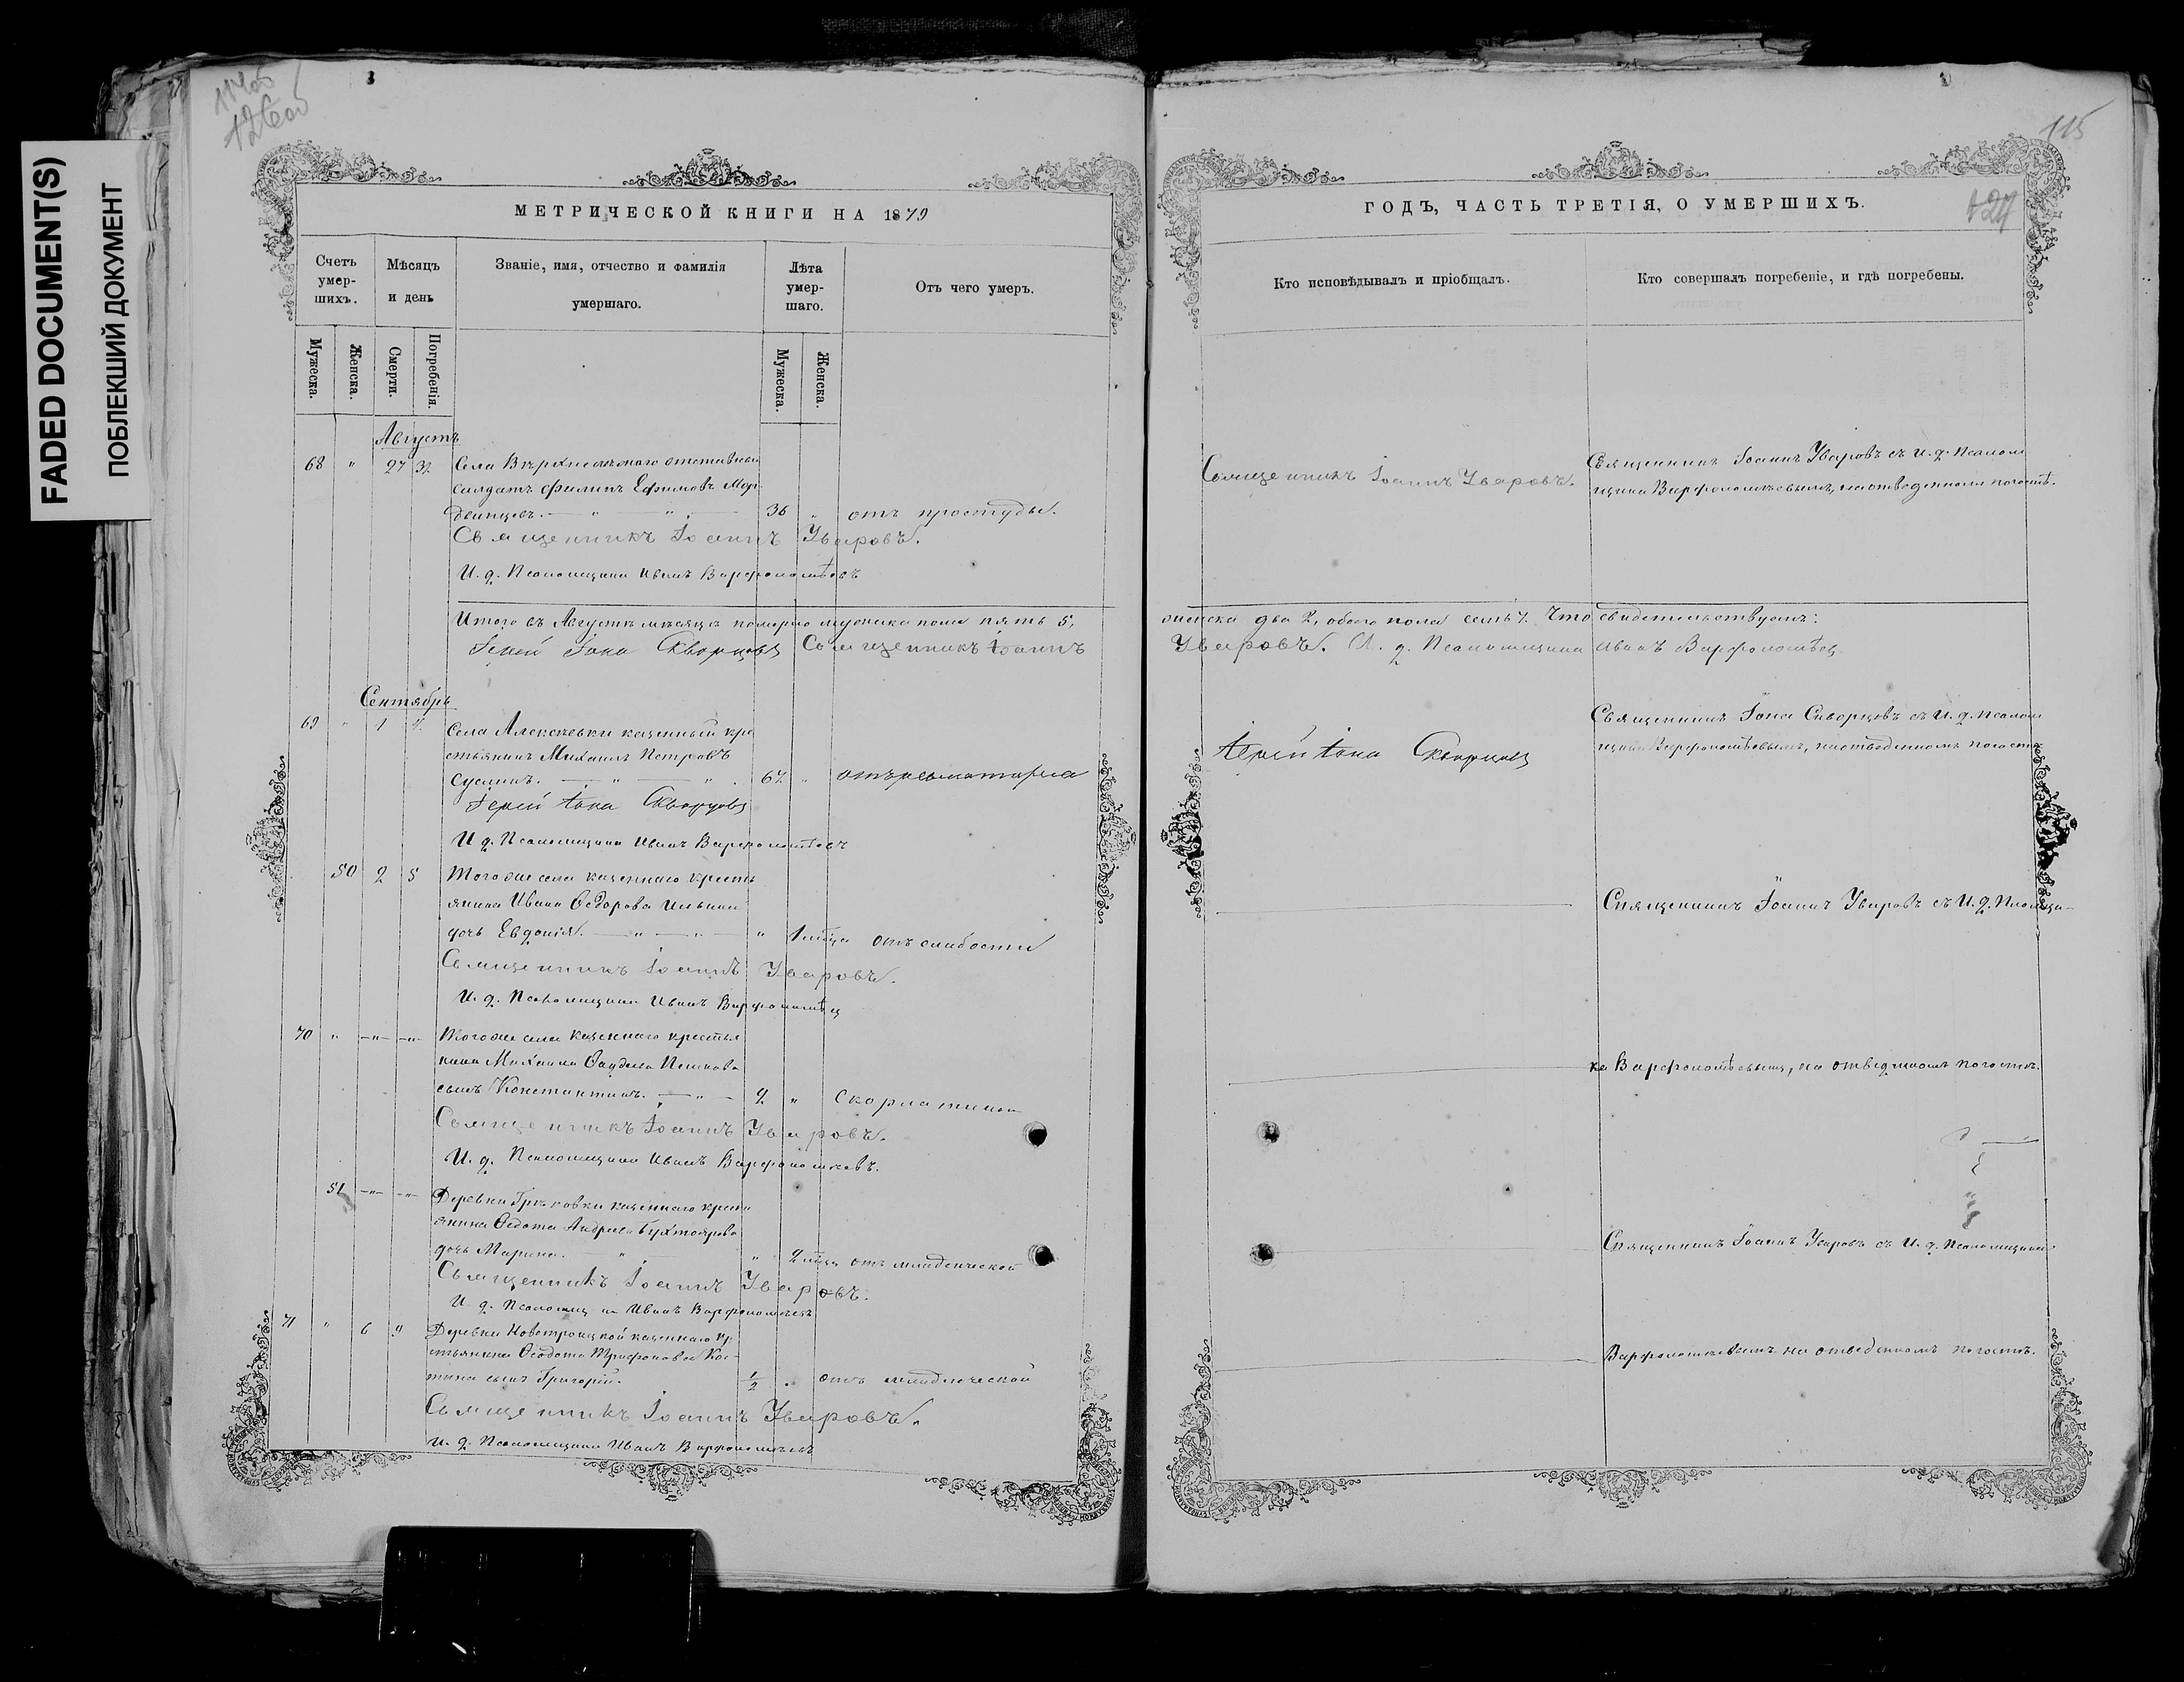 FADED DOCUMENT(S)
ПОБЛЕКШИЙ ДОКУМЕНТ
126об
115
127
МЕТРИЧЕСКОЙ КНИГИ НА 1879
Счетъ умер-шихъ.
Мѣсяцъ и день
Званіе, имя, отчество и фамилія умершаго.
Лѣта умер-шаго.
Отъ чего умеръ.
Мужеска.
Женска.
Смерти.
Погребенія.
Мужеска.
Женска.
Августъ
68 " 27 31 Села отставный
солдатъ Филипъ Ефимовъ Мор
двинцевъ. — " — " — 36 " отъ простуды.
Священникъ Іоаннъ Уваровъ.
И. д. Псаломщика Иванъ Варфоломѣевъ
Итого въ Августѣ мѣсяцѣ померло мужеска пола пять 5,
Іерей Іона Скворцовъ Священникъ Іоаннъ
Сентябрь
69 " 1 4 Села Алексѣевки казенный кре
стьянинъ Михаилъ Петровъ
Суслинъ. — " — " . 67 " отъ ревматизма
Іерей Іона Скворцовъ
И д. Псаломщика Иванъ Варфоломѣевъ
50 2 5 Тогоже села казеннаго кресть
янина Ивана Ѳедорова Ильина
дочь Евдокія. — " — " — " 1 мѣсца отъ слабости
Священникъ Іоаннъ Уваровъ.
И. д. Псаломщика Иванъ Варфоломѣевъ
70 " —"— —"— Тогоже села казеннаго крестья
нина Михаила
сынъ Константинъ. — " — 2 " Скорлатины
Священникъ Іоаннъ Уваровъ.
И. д. Псаломщика Иванъ Варфоломѣевъ.
51 —"— —"— Деревни казеннаго кресть
янина Ѳедота Андреева Бухтоярова
дочь Марина. " " 2 мѣсц отъ младенческой
Священникъ Іоаннъ Уваровъ.
И. д. Псаломщ ка Иванъ Варфоломѣевъ
71 " 6 9 Деревни Новотроицкой казеннаго кр
стьянина Ѳеодота Трифонова Кос-
тина сынъ Григорій. 1/2 . отъ младенческой
Священникъ Іоаннъ Уваровъ.
и. д. Псаломщика Иванъ Варфоломѣевъ
ГОДЪ, ЧАСТЬ ТРЕТІЯ, О УМЕРШИХЪ.
Кто исповѣдывалъ и пріобщалъ.
Кто совершалъ погребеніе, и гдѣ погребены.
Священникъ Іоаннъ Уваровъ.
Священникъ Іоаннъ Уваровъ съ И. д. Псалом
щика Варфоломѣевымъ, на отведенномъ погостѣ.
женска два 2, обоего пола семь 7. Что свидетельствуемъ:
Уваровъ. И. д. Псаломщика Иванъ Варфоломѣевъ
Іерей Іона Скворцовъ
Священникъ Іона Скворцовъ съ И. д. Псалом
щика Варфоломѣевымъ, на отведенномъ погостѣ
Священникъ Іоаннъ Уваровъ съ И. д. Псаломщи-
ка Варфоломѣевымъ, на отведенномъ погостѣ.
Священникъ Іоаннъ Уваровъ съ И. д. Псаломщика
Варфоломѣевымъ на отведенномъ погостѣ.